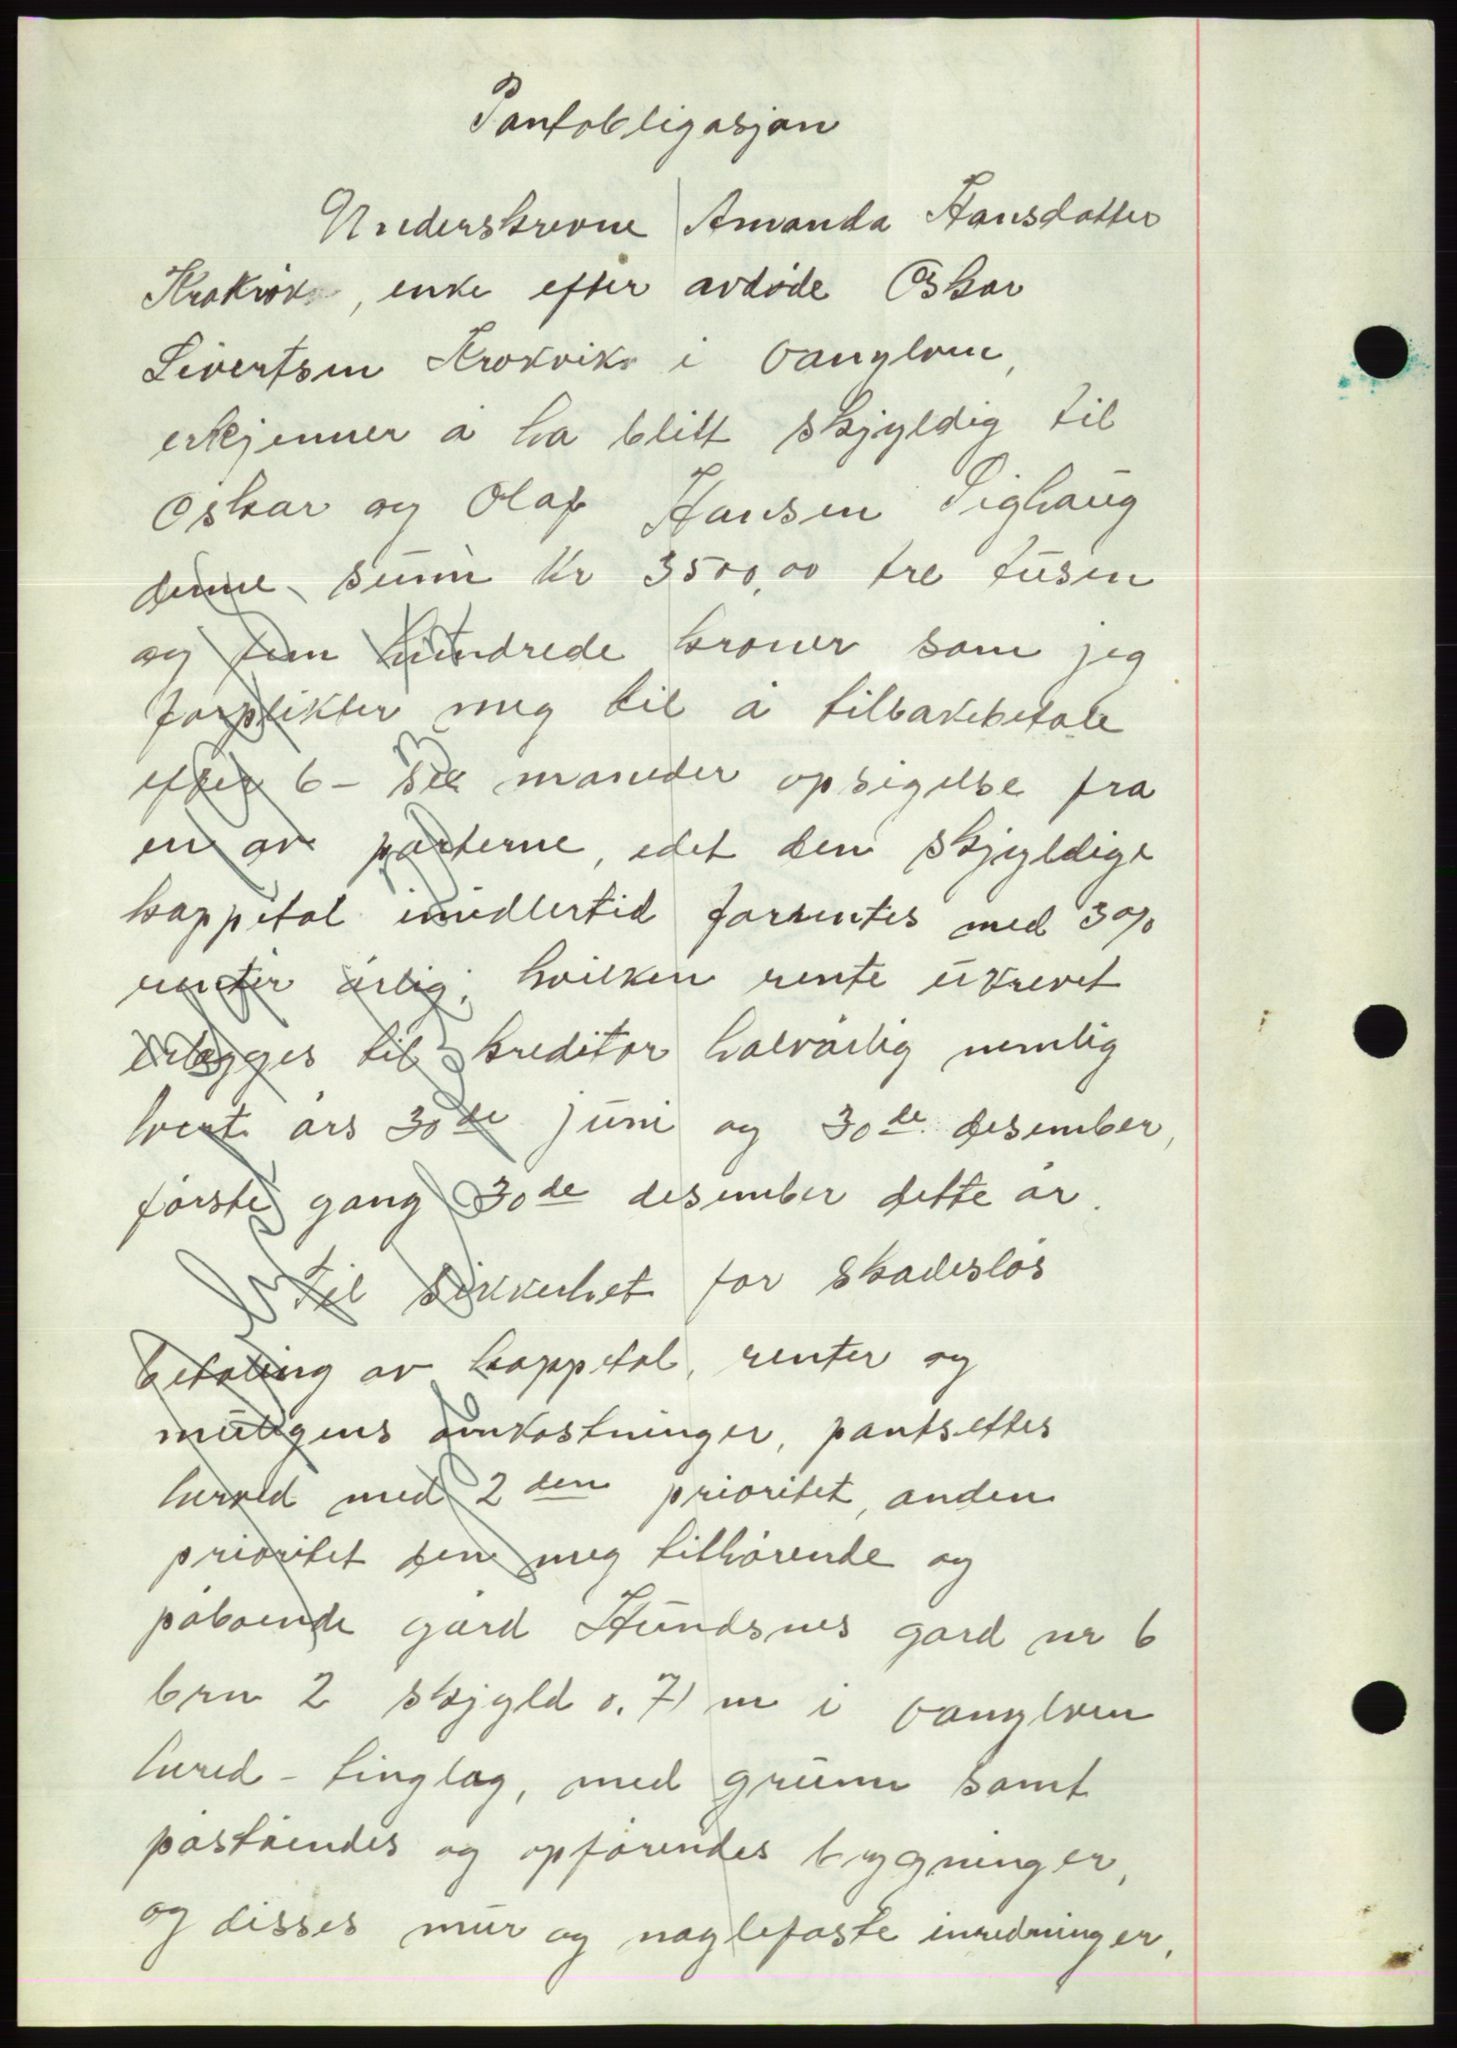 Pantobligasjon
Underskrevne Amanda Hansdatter
Krokvik, enke efter avdøde Oskar
Sivertsen Krokvik i Vanylven,
erkjenner å ha blitt skjyldig til
Oskar og Olaf Hansen Sighaug
denne sum kr 3500,00 tre tusen
og fem hundrede kroner som jeg
forplikter meg til å tilbakebetale
efter 6 - sex måneder opsigelse fra
en av parterne, idet den skjyldige
kappital imidlertid forrentes med 3 %
renter årlig, hvilken rente ukrevet
erlegges til kreditor halvårlig nemlig
hvert års 30de juni og 30de desember,
første gang 30de desember dette år.
Til sikkerhet for skadesløs
betaling av kappital, renter og
muligens omkostninger, pantsettes
herved med 2den prioritet, anden
prioritet den meg tilhørende og
påboende gård Hundsnes gard nr 6
brn 2 skjyld 0.71 m i Vanylven
hered - tinglag, med grunn samt
påståendes og opførendes bygninger,
og disses mur og naglefaste inredninger,